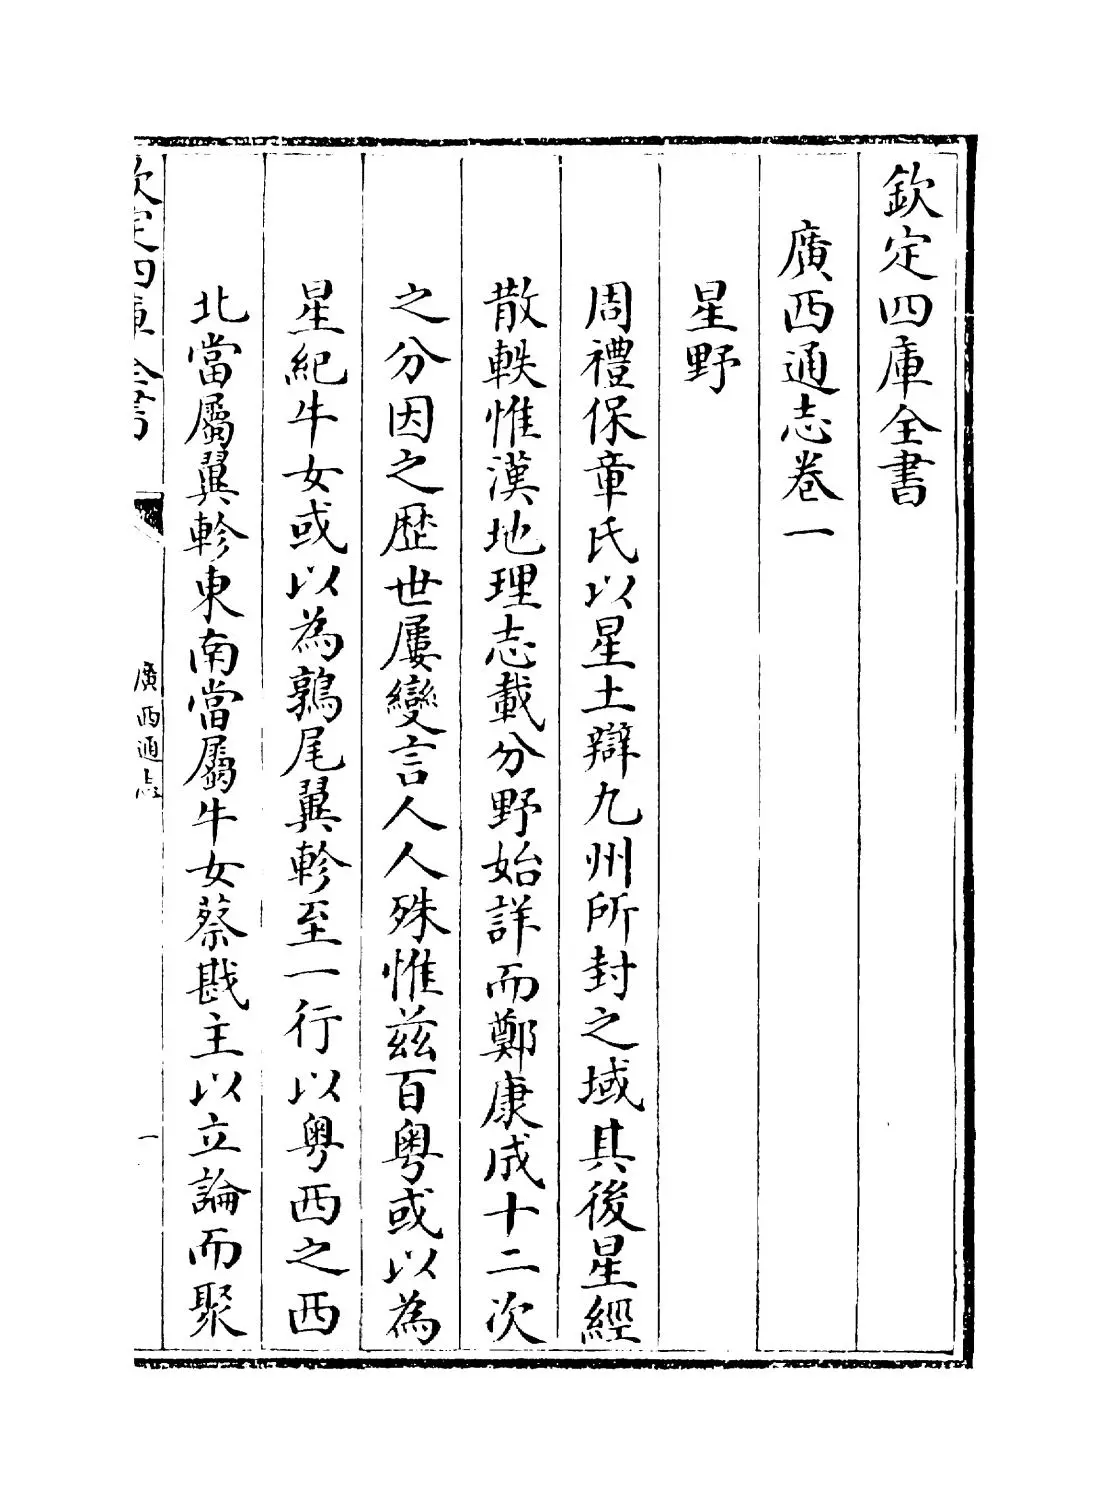 欽定四庫全書
廣西通志卷一
星野
周禮保章氏以星土辯九州所封之域其後星經
散軼惟漢地理志載分野始詳而鄭康成十二次
之分因之歴世屢變言人人殊惟兹百粤或以為
星紀牛女或以為鶉尾翼軫至一行以粤西之西
北當屬翼軫東南當屬牛女蔡戡主以立論而聚
欽定四庫全書
廣西通志
一